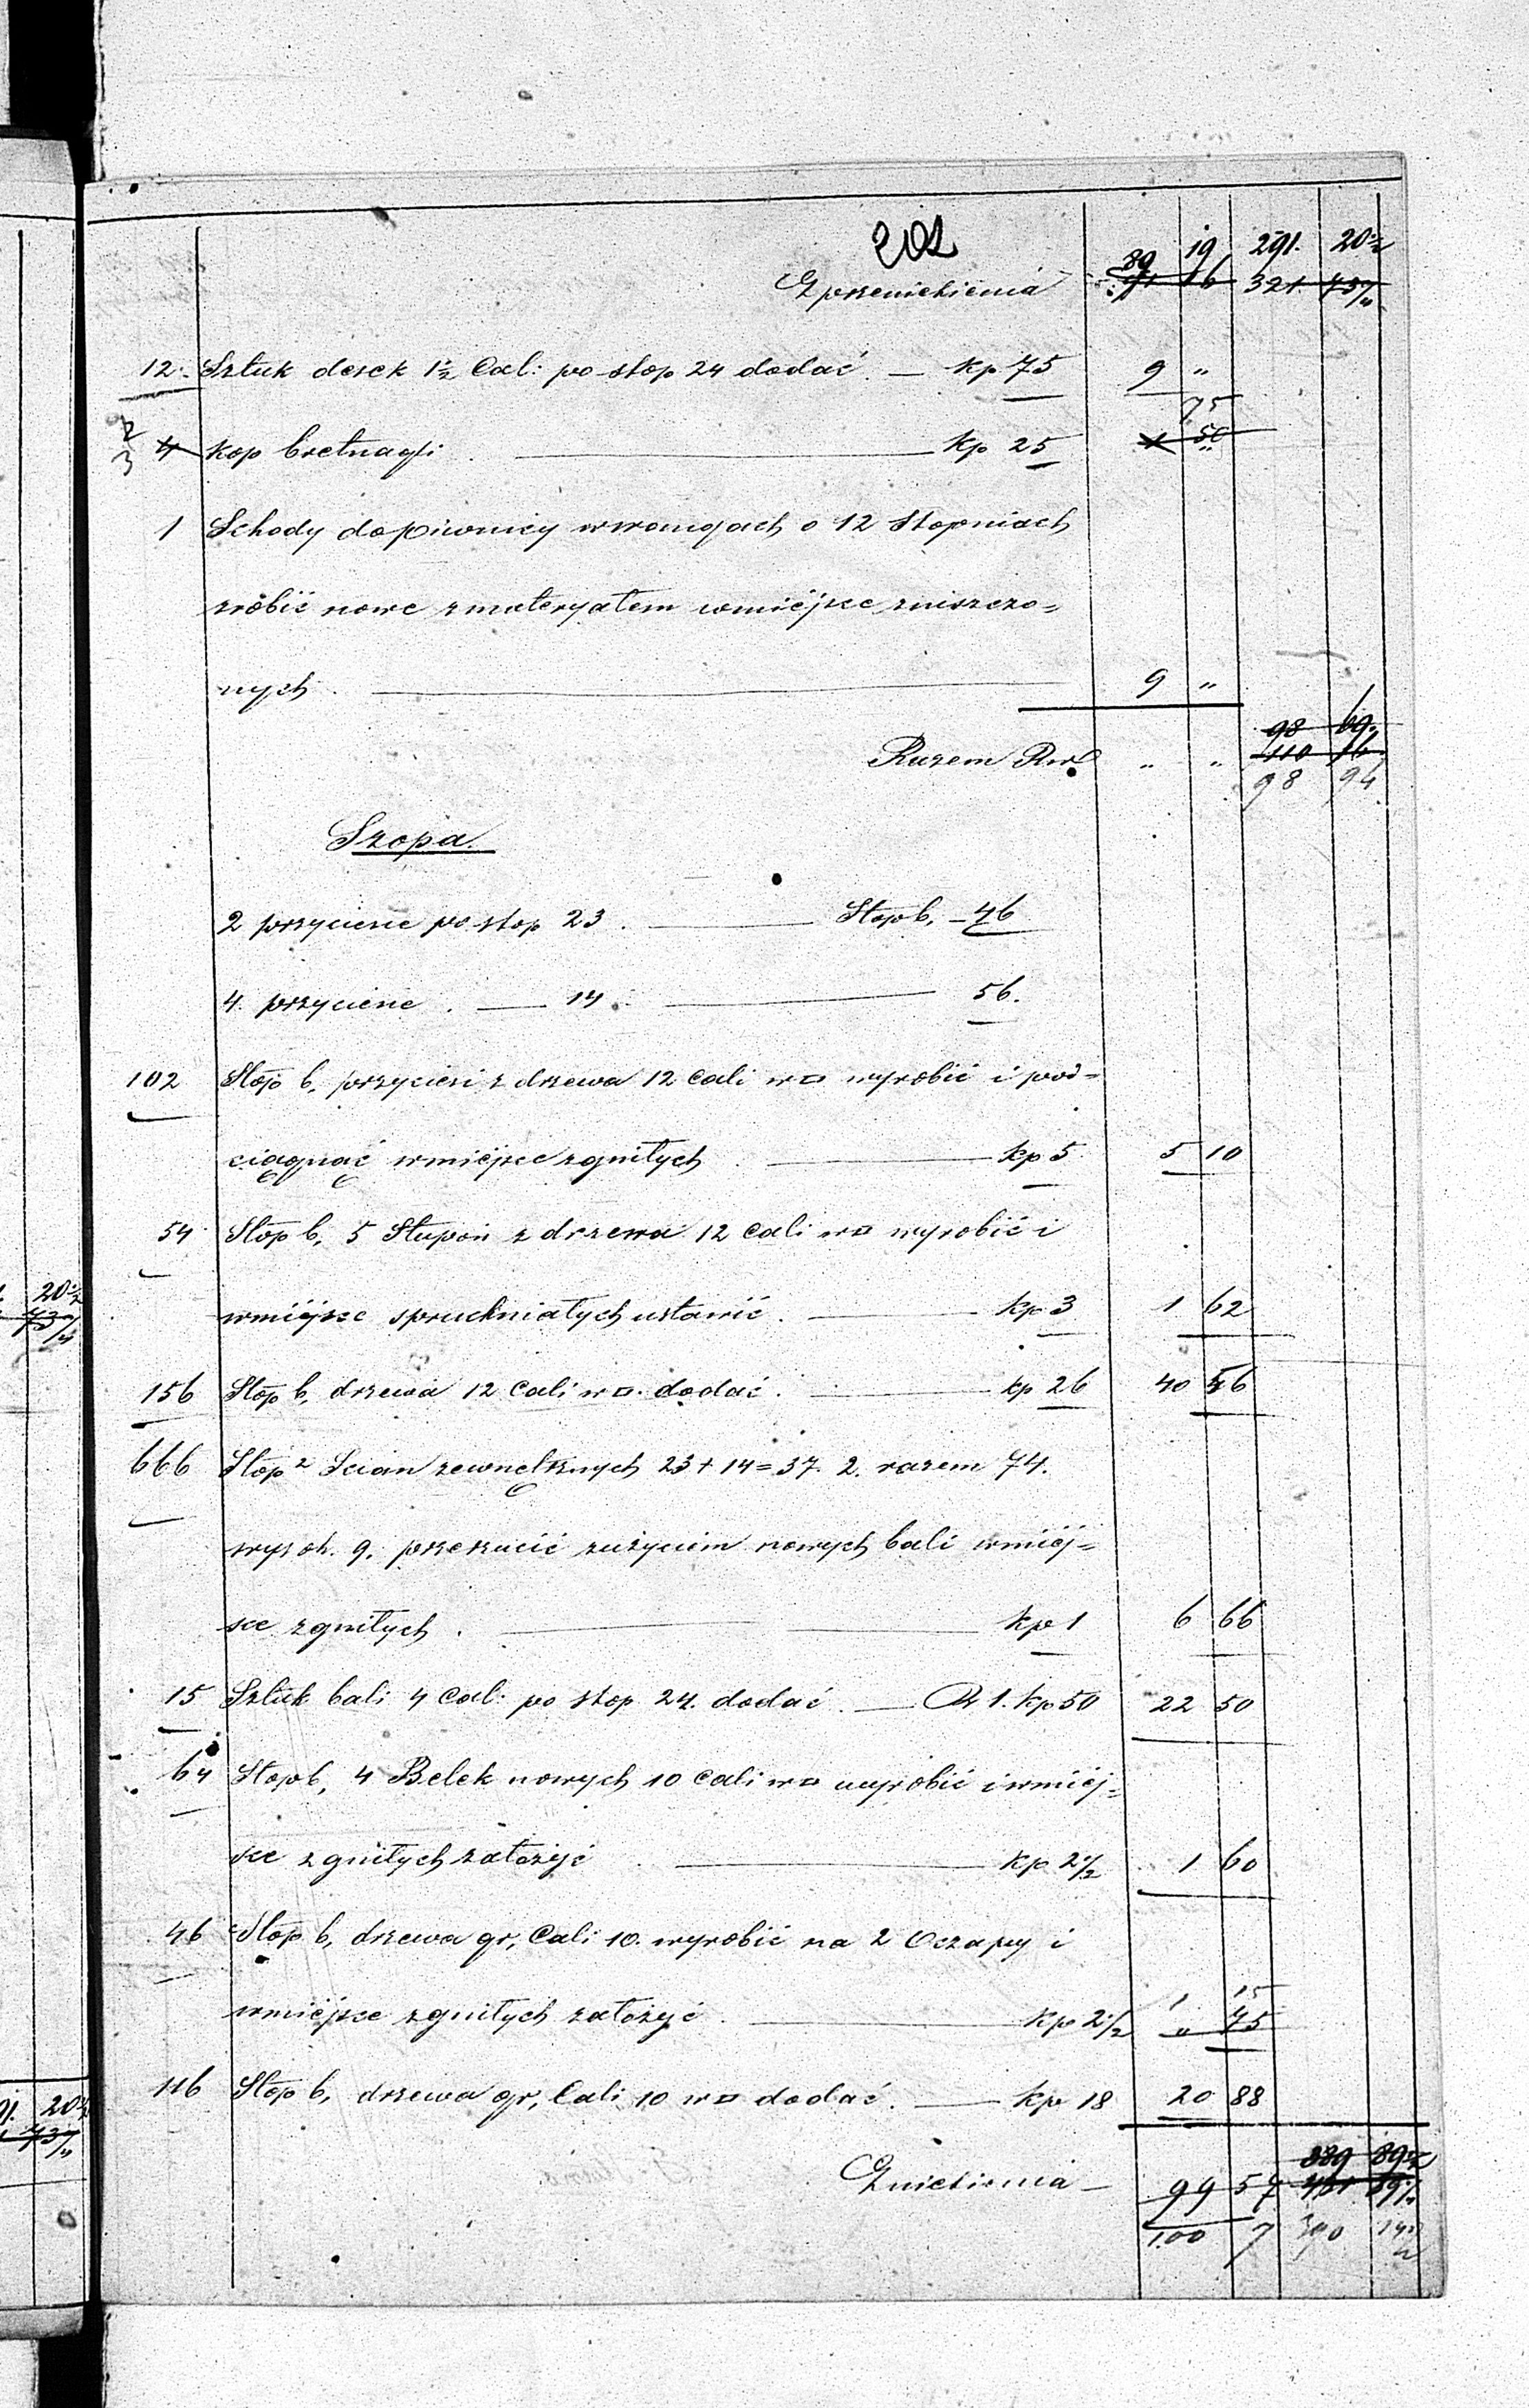 202
80 19 291. 20 1/2
Z przeniesienia 71 16 321. 73 1/2
12. Sztuk desek 1 1/2 Cal: po stop 24 dodać. — kp 75 9 "
75
2 3 4 kop bretnagli . — kp 25 1 50
1 Schody do piwnicy w wangach o 12 Stopniach
zrobić nowe z materyałem w miéjsce zniszczo=
nych . — 9 "
98 69.
Razem Rs. " " 110 16
98 94
Szopa.
2 przyciesie po stop 23 . — Stop b. — 46
4. przyciesie . — 14 . — 56.
102 Stop b, przyciesi z drzewa 12 cali w □ wyrobić i pod=
ciągnąć w miéjsce zgniłych . — kp 5 5 10
54 Stop b, 5 Słupów z drzewa 12 cali w □ wyrobić i
w miéjsce spruchniałych ustawić . — kp 3 1 62
156 Stop b, drzewa 12 Cali w □. dodać . — kp 26 40 56
666 Stop 2 Scian zewnętrznych 23 + 14 = 37. 2. razem 74.
wysok. 9. przerzucić z użyciem nowych bali w miéj=
sce zgniłych . — kp 1 6 66
15 Sztuk bali 4 Cal: po stop 24. dodać . — Rs 1. kp 50 22 50
64 Stop b, 4 Belek nowych 10 Cali w □ wyrobić i w miéj=
sce zgniłych założyć . — kp 2 1/2 1 60
46 Stop b, drzewa gr, Cali 10. wyrobić na 2 Oczapy i
1 15
w miéjsce zgniłych założyć . — kp 2 1/2 " 75
116 Stop b, drzewa gr, Cali 10 w □ dodać . — kp 18 20 88
889 89 1/2
Zniesienia — 99 57 431 89 1/2
100 7 390 14 1/2
20 1/2
73 1/2
91. 20 1/2
73 1/2